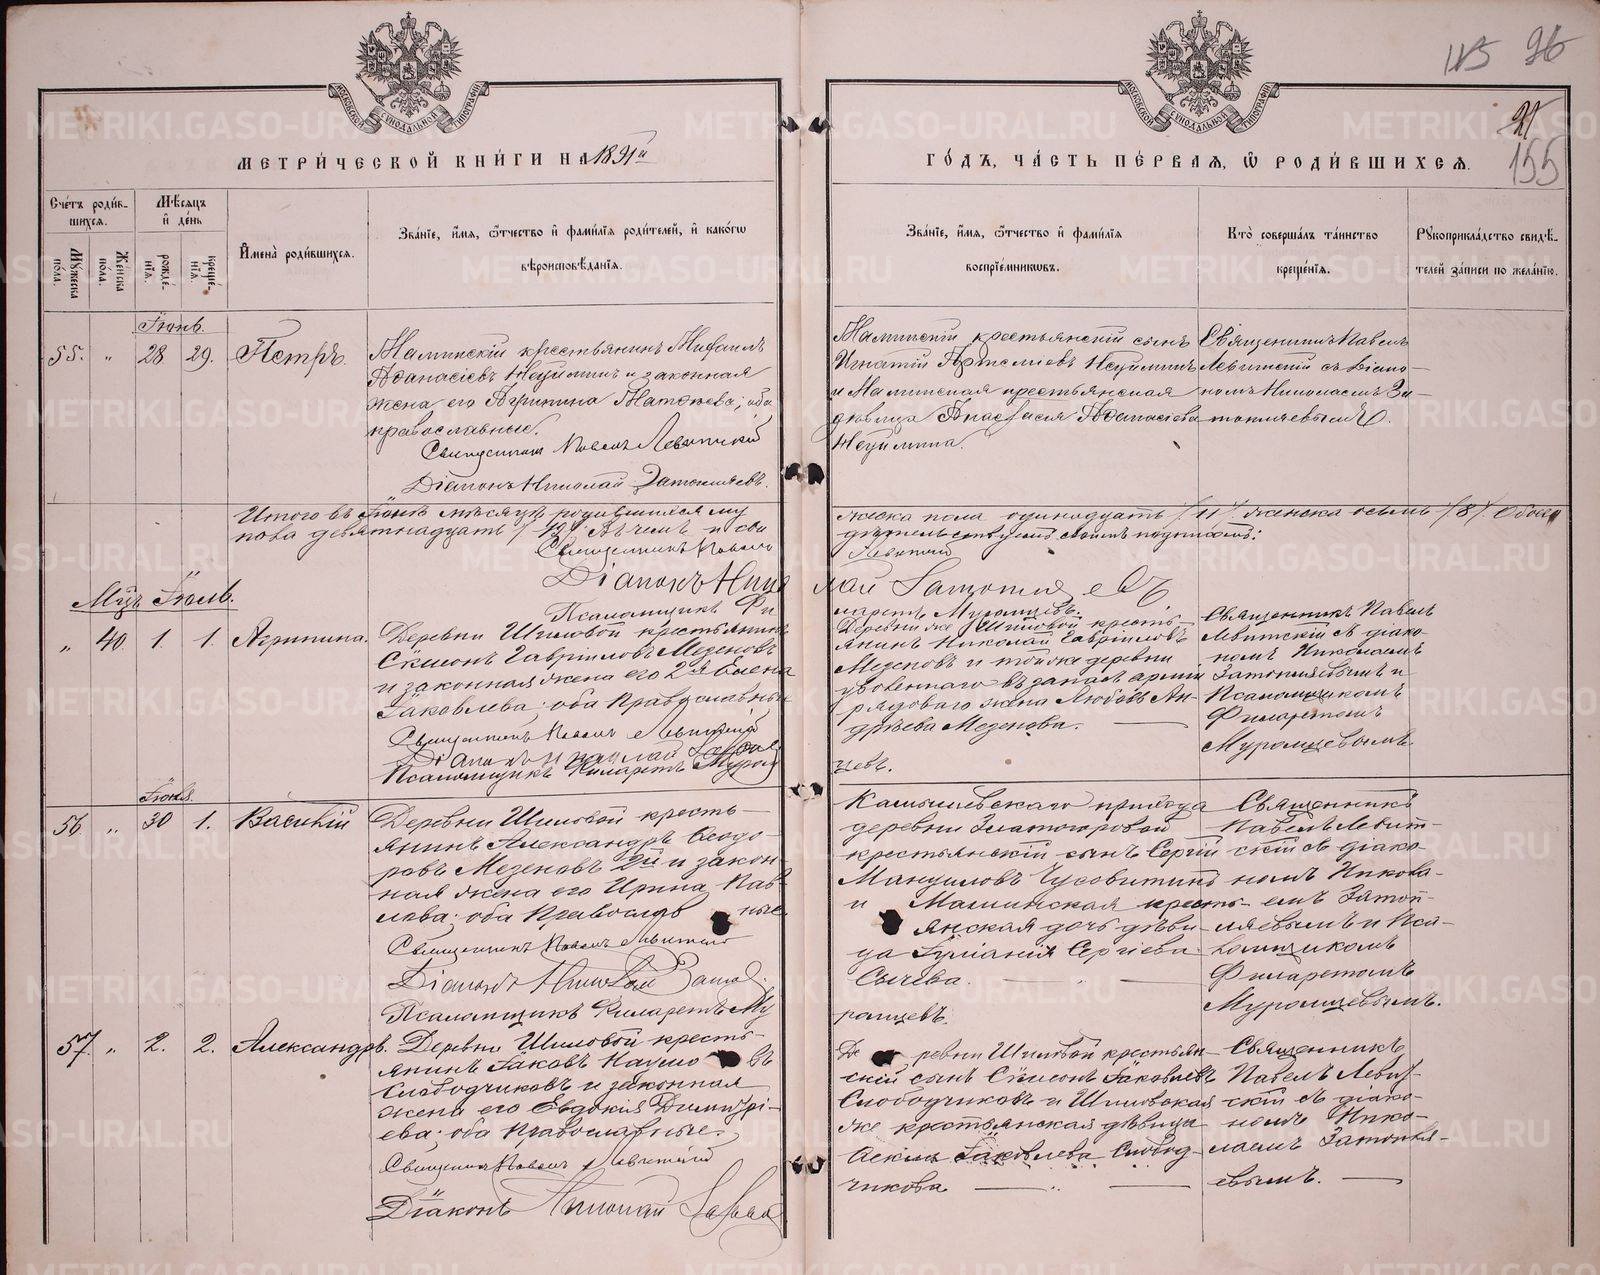 115 96
21
155
МОСКОВСКОЙ СѴНОДАЛЬНОЙ ТИПОГРАФІИ
МОСКОВСКОЙ СѴНОДАЛЬНОЙ ТИПОГРАФІИ
МЕТРИ́ЧЕСКОЙ КНИ́ГИ НА 1891й
ГО́ДЪ, ЧА́СТЬ ПЕ́РВАЯ, Ѡ РОДИ́ВШИХСЯ.
Сче́тъ роди́в-
шихся.
Мꙋ́жеска по́ла.
Же́нска по́ла.
Мѣ́сяцъ и де́нь
рожде́-
нїя.
креще́-
нїя.
Имена̀ роди́вшихся.
Зва́нїе, и́мя, ѻ́тчество и фами́лїя роди́телей, и како́гѡ
вѣроисповѣ́данїя.
Зва́нїе, и́мя, ѻ́тчество и фами́лїя
воспрїе́мникѡвъ.
Кто̀ соверша́лъ та́инство
креще́нїя.
Рꙋкоприкла́дство свидѣ́-
телей за́писи по жела́нїю.
Іюнь.
55. " 28 29. Петръ.
Маминскій крестьянинъ Михаилъ
Аѳанасіевъ Неуйминъ и законная
жена его Агрипина Матѳѣева; оба
православные.
Священникъ Павелъ Левитскій
Діаконъ Николай Затопляевъ.
Маминскій крестьянскій сынъ
Игнатій Артемиевъ Неуйминъ
и Маминская крестьянская
дѣвица Анастасія Аѳанасіева
Неуймина.
Священникъ Павелъ
Левитскій съ діако-
номъ Николаемъ За-
топляевымъ.
Итого въ Іюнѣ мѣсяцѣ родившихся му
жеска пола одинадцать /11/ женска осемь /8/. Обоего
пола девятнадцать /19/. Въ чемъ и сви
дѣтельствуемъ своимъ подписомъ:
Священникъ Павелъ
Левитскій
Діаконъ Нико
лай Затопляевъ
Псаломщикъ Фи
ларетъ Муромцевъ.
Мцъ Іюль.
" 40. 1. 1. Агрипина.
Деревни Шиловой крестьянинъ
Сѵмеонъ Гавріиловъ Мезеновъ
и законная жена его 2я Елена
Іаковлева; оба Православные
Священникъ Павелъ Левитскій
Діаконъ Николай Затопля
Псаломщикъ Филаретъ Муром
цевъ.
Деревни же Шиловой кресть-
янинъ Николай Гавріиловъ
Мезеновъ и тойже деревни
уволеннаго въ запасъ арміи
рядоваго жена Любовь Ан-
дрѣева Мезенова.
Священникъ Павелъ
Левитскій съ діако-
номъ Николаемъ
Затопляевымъ и
Псаломщикомъ
Филаретомъ
Муромцевымъ.
Іюня.
56 " 30 1. Василій
Деревни Шиловой кресть-
янинъ Александръ Ѳеодо-
ровъ Мезеновъ 2й и закон-
ная жена его Ирина Пав-
лова; оба Православные.
Священникъ Павелъ Левитскій
Діаконъ Николай Затоп
Псаломщикъ Филаретъ Му
ромцевъ.
Камышевскаго прихода
деревни Златогоровой
крестьянскій сынъ Сергій
Мануиловъ Чусовитинъ
и Маминская кресть-
янская дочь дѣви-
ца Іуліанія Сергіева
Сычева.
Священникъ
Павелъ Левит-
скій съ діако-
номъ Никола-
емъ Затоп-
ляевымъ и Пса-
ломщикомъ
Филаретомъ
Муромцевымъ.
57. " 2. 2. Александръ.
Деревни Шиловой кресть-
янинъ Іаковъ Наумовъ
Слободчиковъ и законная
жена его Евдокія Димитрі-
ева; оба Православные.
Священникъ Павелъ Левитскій
Діаконъ Николай Затоп
Деревни Шиловой крестьян-
скій сынъ Сѵмеонъ Іаковлевъ
Слободчиковъ и Шиловская
же крестьянская дѣвица
Іаковлева Слобод-
чикова
Священникъ
Павелъ Левит-
скій съ діако-
номъ Нико-
лаемъ Затопля-
евымъ.
METRIKI.GASO-URAL.RU